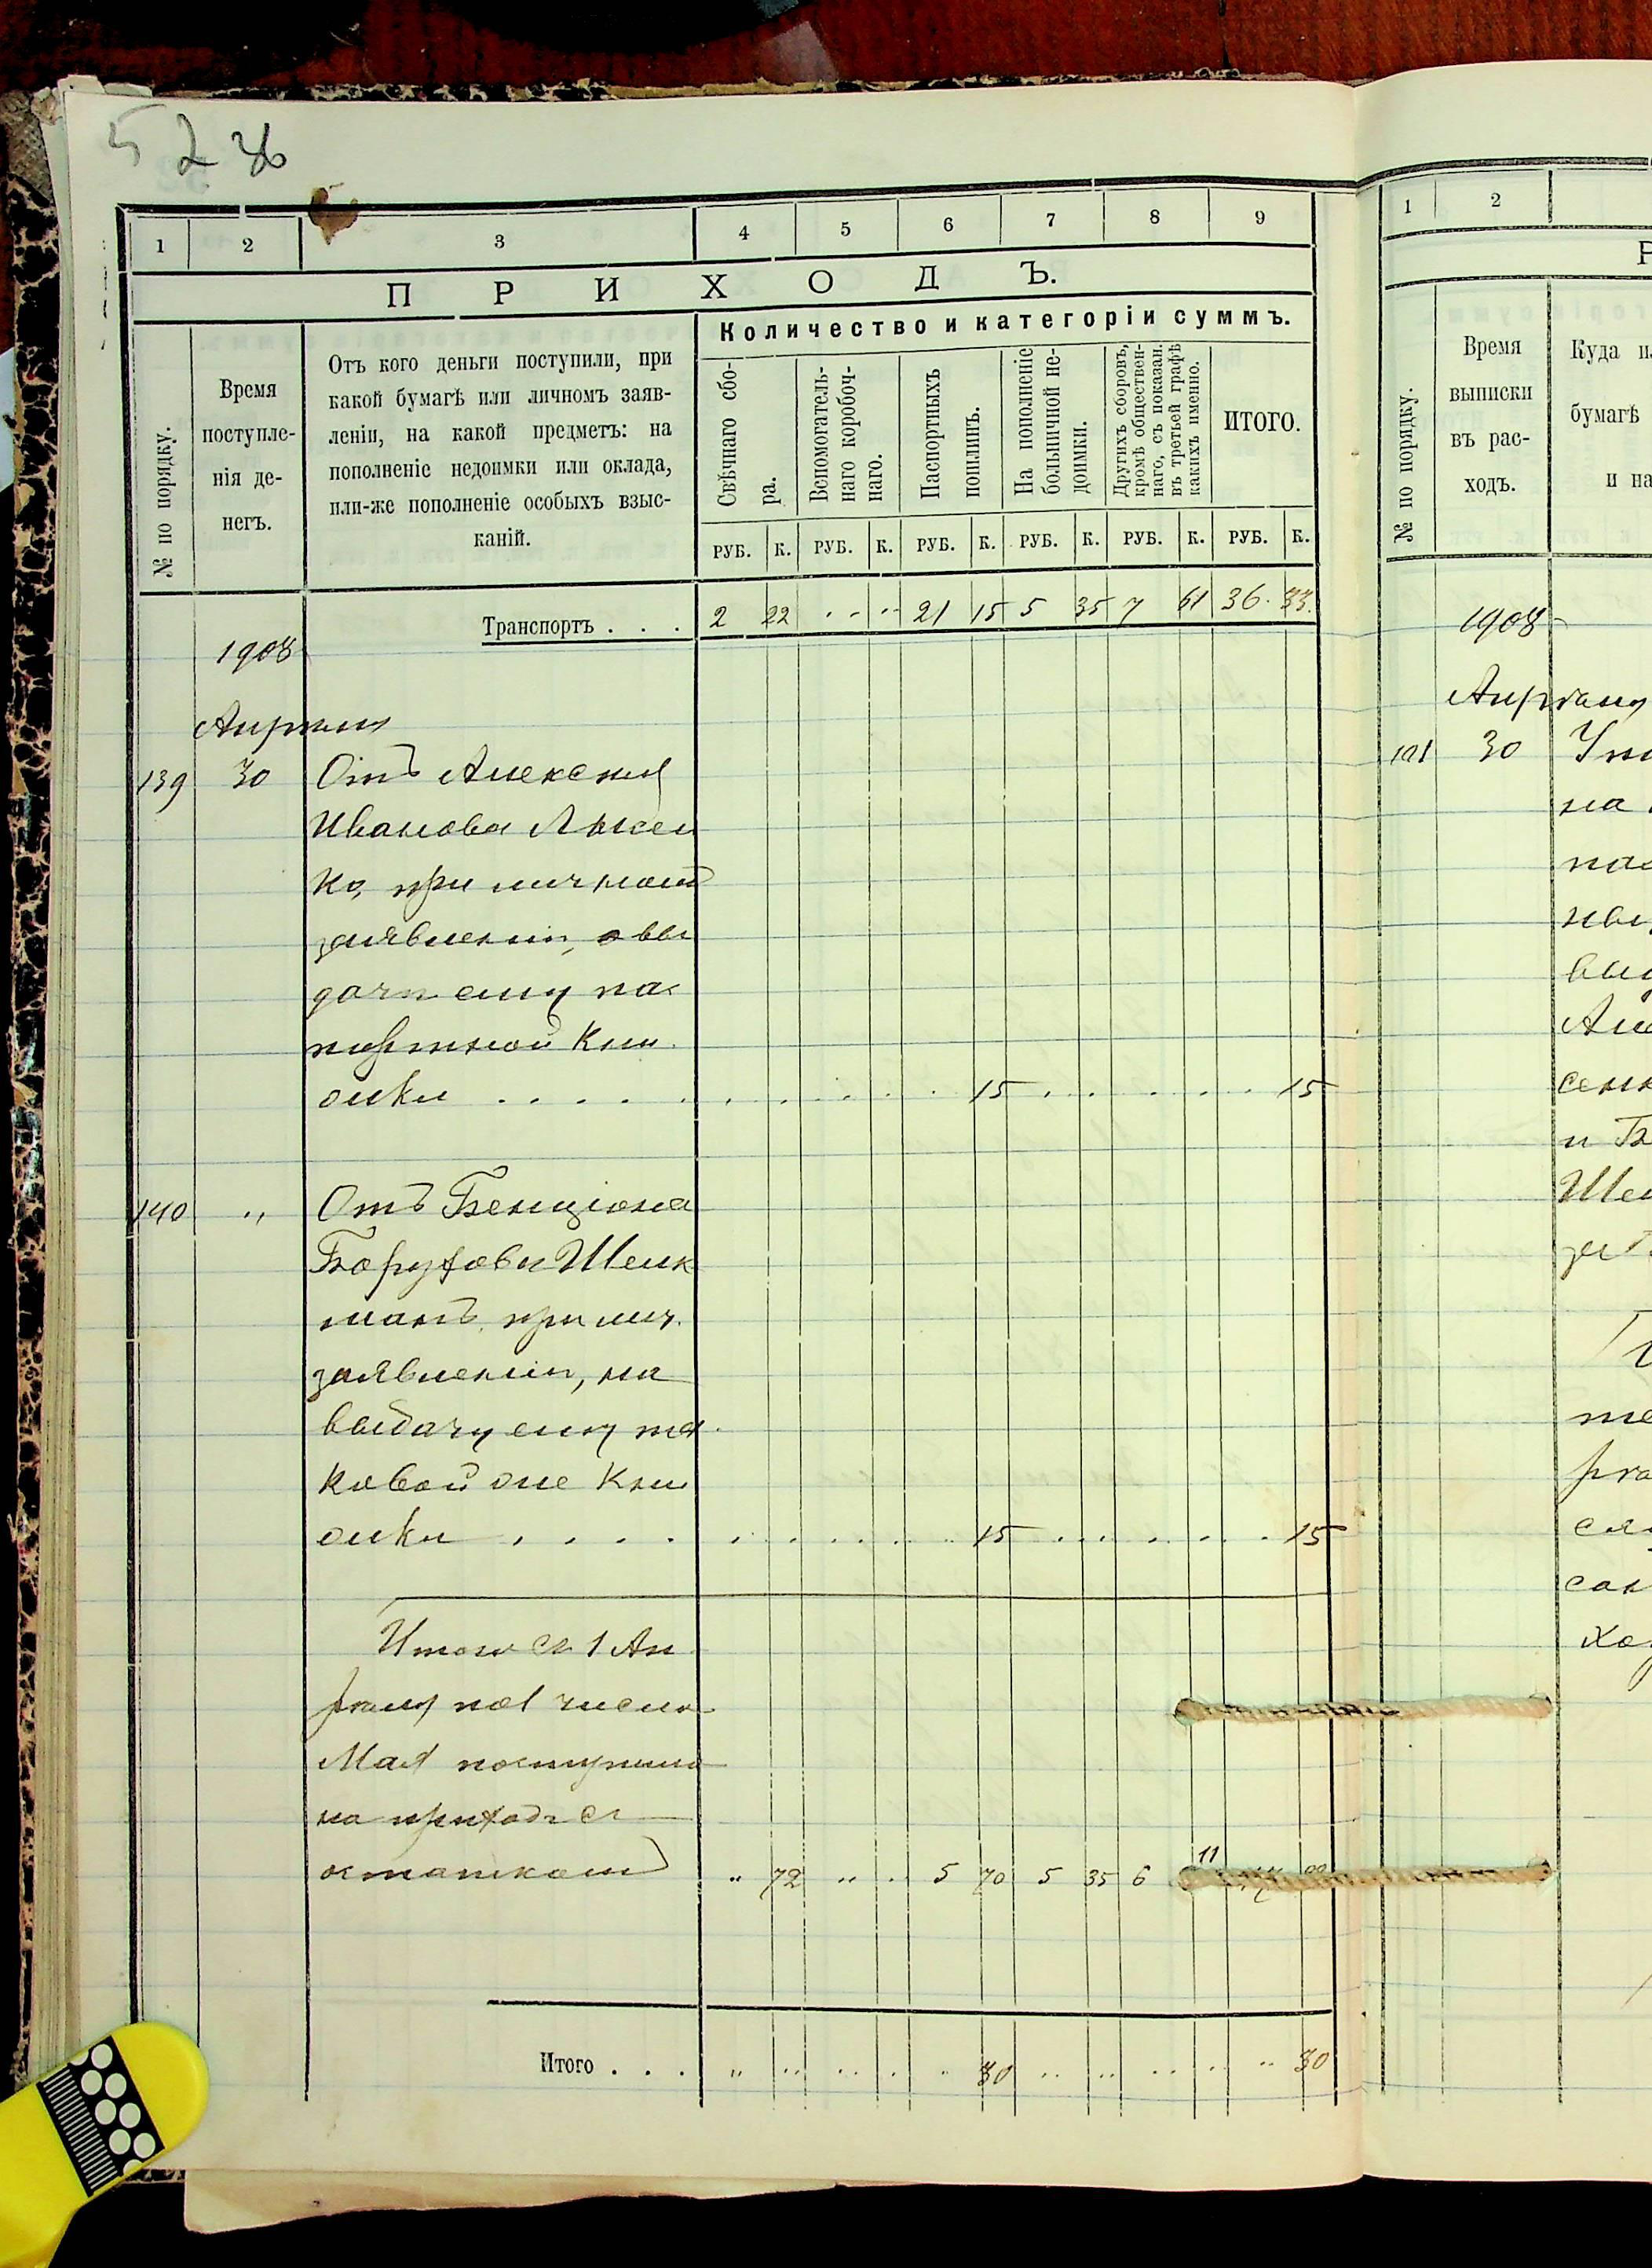 5 2 об
1 2 3 4 5 6 7 8 9
ПРИХОДЪ.
№ по порядку.
Время
поступле-
нія де-
негъ.
Отъ кого деньги поступили, при
какой бумагѣ или личномъ заяв-
леніи, на какой предметъ: на
пополненіе недоимки или оклада,
или-же пополненіе особыхъ взыс-
каній.
Количество и категоріи суммъ.
Свѣчнаго сбо-
ра.
Вспомогатель-
наго коробоч-
наго.
Паспортныхъ
пошлинъ.
На пополненіе
больничной не-
доимки.
Другихъ сборовъ,
кромѣ обществен-
наго, съ показан.
въ третьей графѣ
какихъ именно.
ИТОГО.
РУБ. К. РУБ. К. РУБ. К. РУБ. К. РУБ. К. РУБ. К.
Транспортъ . . . 2 22 21 15 5 35 7 61 36 33
1908
Апрѣля
139 30 Отъ Алексѣя
Иванова
ко, при личномъ
заявленіи, о вы
дачи ему пас
портной кни
жки . . . . 15 . . . . 15
140 " Отъ Бенціона
Борухова Шенк
мана, при лич.
заявленіи, на
выдачу ему та
ковой же кни
жки . . . . 15 . . . . 15
Итого съ 1 Ап
рѣля по 1 число
Мая поступило
на приходъ съ
остаткомъ " 72 " " 5 70 5 35 6 11
Итого . . . " " " " " 30 " " " " " 30
1 2
№ по порядку.
Время
выписки
въ рас-
ходъ.
Куда и
бумагѣ
и на
1908
Апрѣля
101 30
на
пас
выд
Але
сенк
и Б
Шен
за
ме
рѣ